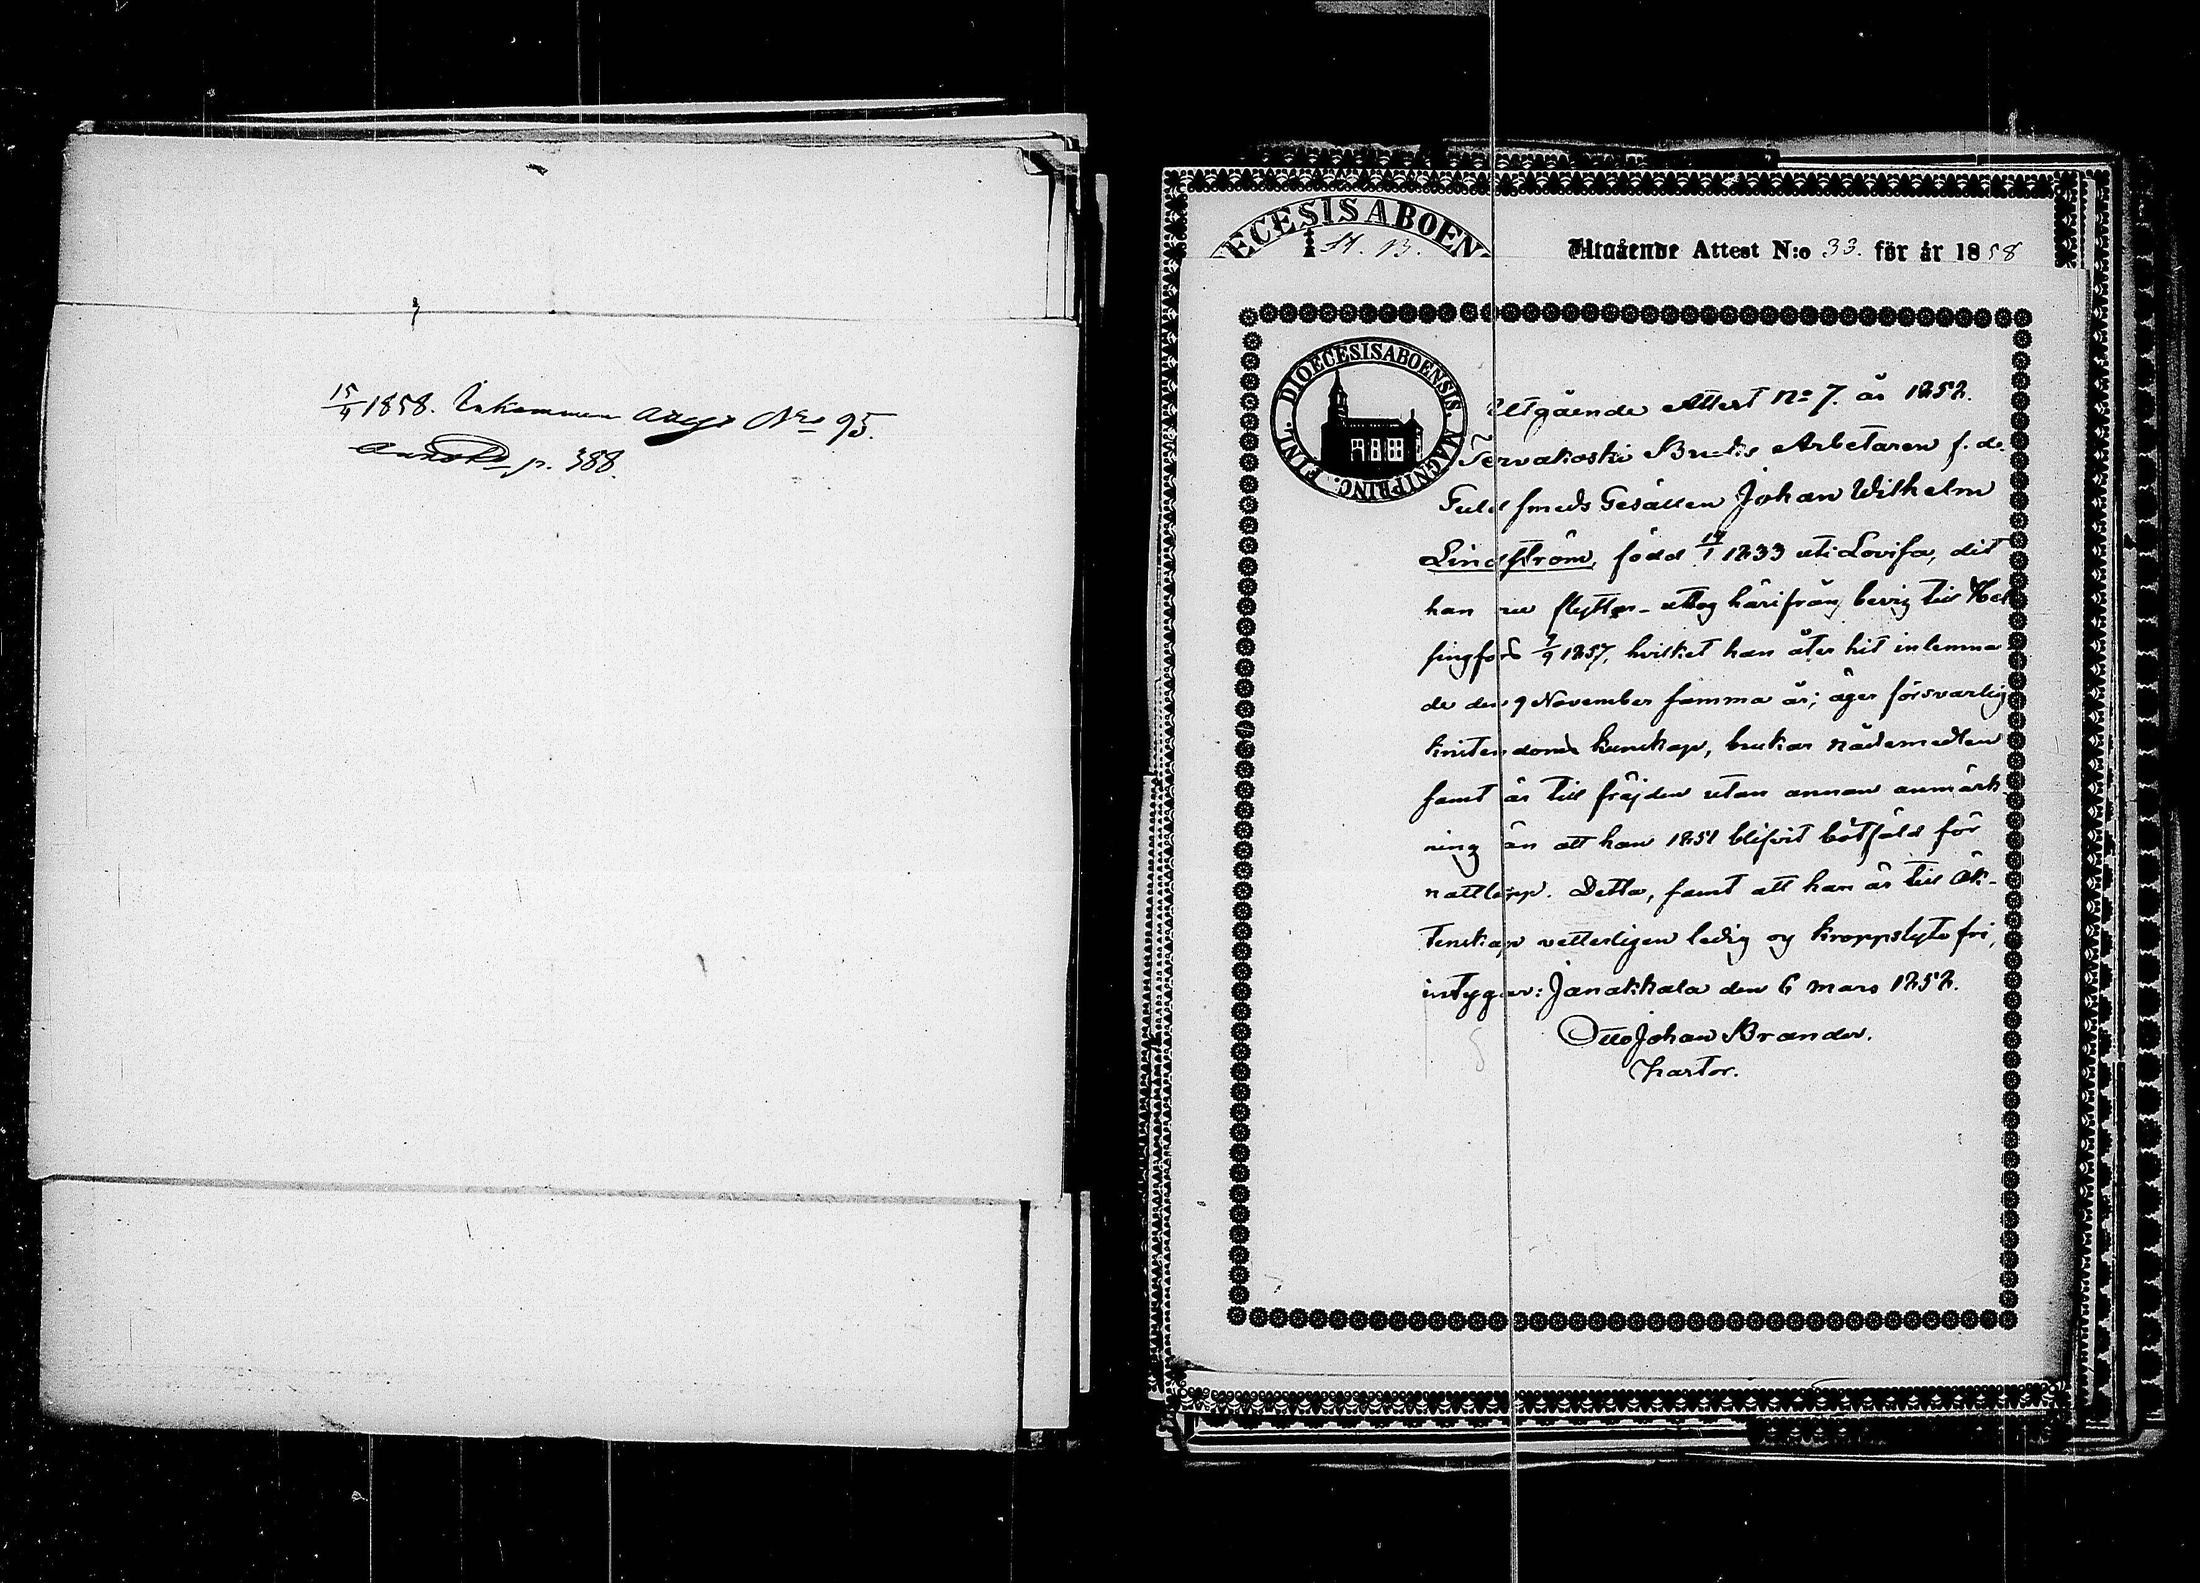 15/4 1858. Inkommen N:o 95.
p. 388.
ECESIS ABOEN
Utgående Attest N:o 33. för år 1858
DIOECESIS ABOENSIS. MAGNI PRINC. FINL.
Utgående Attest No 7. år 1858.
Tervakoski Bruks Arbetaren f. d.
Guldsmeds Gesällen Johan Wilhelm
Lindström, född 14/1 1833 uti Lovisa, dit
han nu flyttar - uttog härifrån bevis till Hel
singfors 7/9 1857, hvilket han åter hit inlemna
de den 9 November samma år; äger försvarlig
kristendoms kunskap, brukar nådemedlen
samt är till fräjden utan annan anmärk-
ning än att han 1851 blifvit bötfäld för
nattlopp. Detta, samt att han är till Äk-
tenskap vetterligen ledig och kroppslyte fri,
intygar: Janakkala den 6 mars 1858.
Otto Johan Brander.
Pastor.